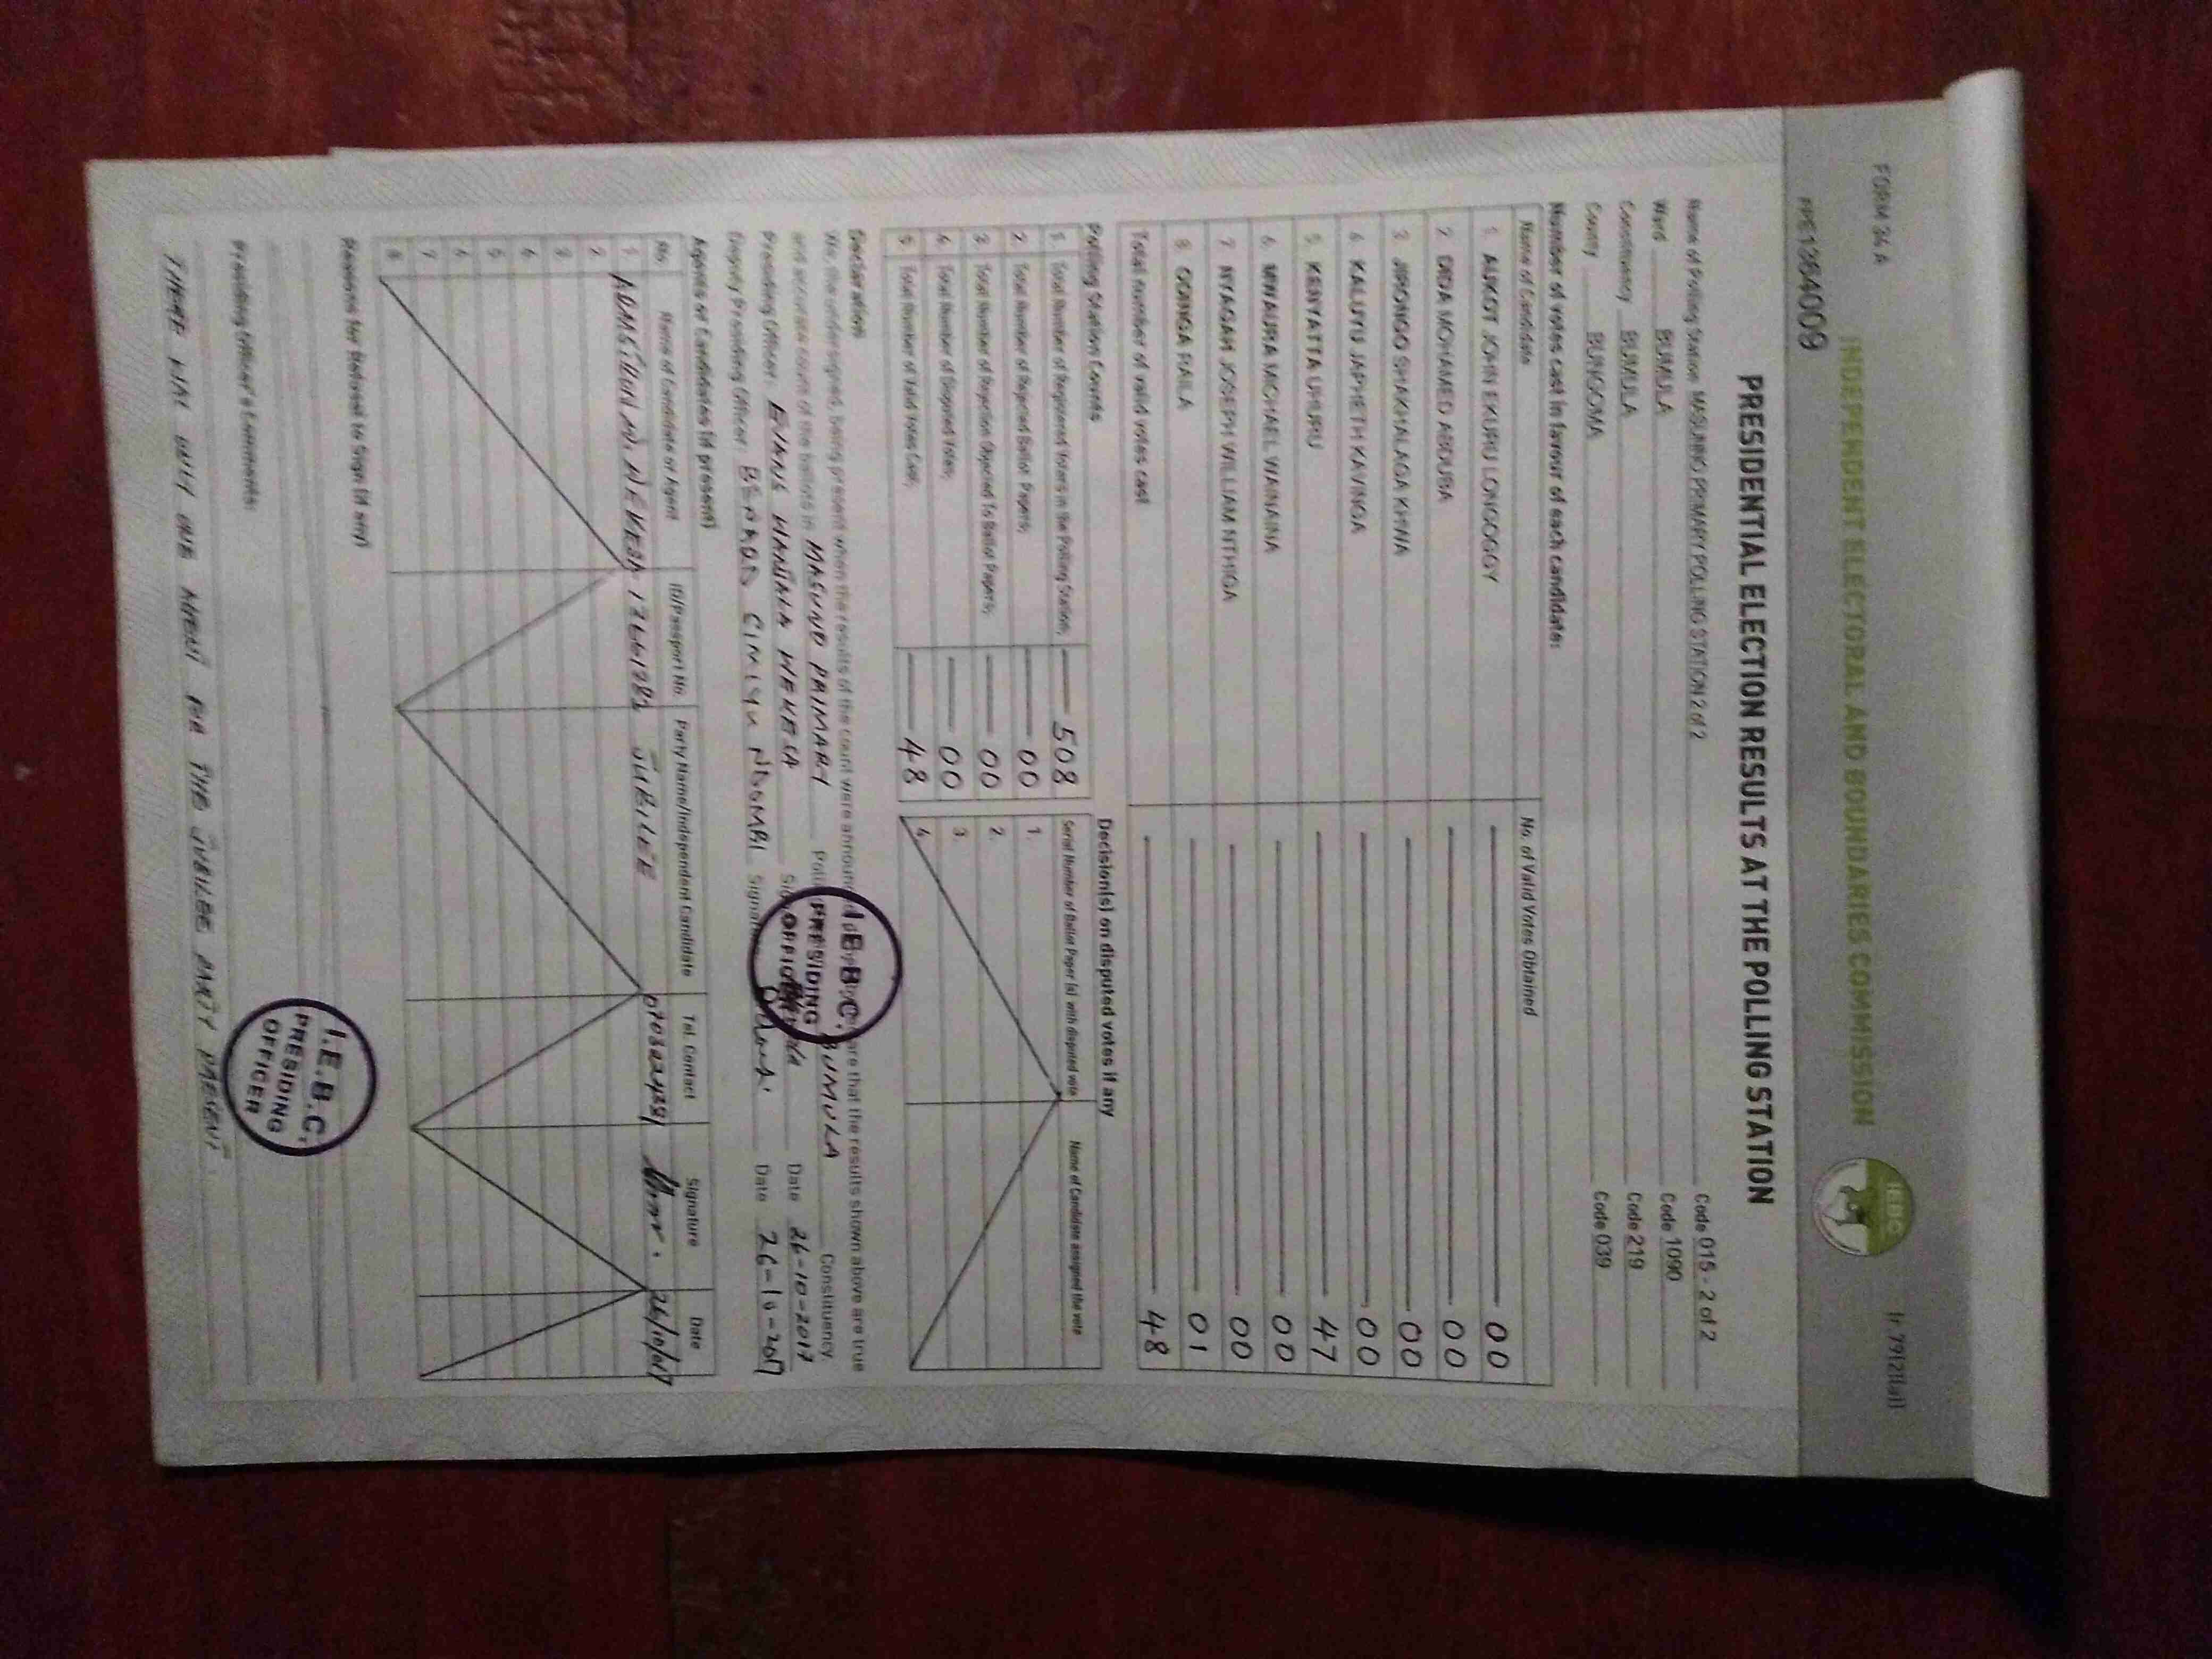 FORM 34 A
(r 79(2)(a))
INDEPENDENT ELECTORAL AND BOUNDARIES COMMISSION
IEBC
PRESIDENTIAL ELECTION RESULTS AT THE POLLING STATION
Name of Polling Station MASUNO PRIMARY POLLING STATION 2 of 2 Code 015 - 2 of 2
Ward BUMULA Code 1090
Constituency BUMULA Code 219
County BUNGOMA Code 039
Number of votes cast in favour of each candidate:
Name of Candidate No. of Valid Votes Obtained
1. AUKOT JOHN EKURU LONGOGGY 00
2. DIDA MOHAMED ABDUBA 00
3. JIRONGO SHAKHALAGA KHWA 00
4. KALUYU JAPHETH KAVINGA 00
5. KENYATTA UHURU 47
6. MWAURA MICHAEL WAINAINA 00
7. NYAGAH JOSEPH WILLIAM NTHIGA 00
8. ODINGA RAILA 01
Total number of valid votes cast 48
Polling Station Counts
1. Total Number of Registered Voters in the Polling Station; 508
2. Total Number of Rejected Ballot Papers; 00
3. Total Number of Rejection Objected To Ballot Papers; 00
4. Total Number of Disputed Votes; 00
5. Total Number of Valid Votes Cast; 48
Decision(s) on disputed votes if any
Serial Number of Ballot Paper (s) with disputed vote Name of Candidate assigned the vote
1.
2.
3.
4.
Declaration
We, the undersigned, being present when the results of the count were announced are that the results shown above are true
and accurate count of the ballots in MASUNO PRIMARY BUMULA Constituency
Presiding Officer: EVANS WEKESA Date 26-10-2017
Deputy Presiding Officer: Date 26-10-2017
I.E.B.C.
PRESIDING
OFFICER
Agents of Candidates (if present)
No. Name of Candidate or Agent ID/Passport No. Party Name/Independent Candidate Tel. Contact Signature Date
1 JUBILEE 26/10/017
2
3
4
5
6
7
8
Reasons for Refusal to Sign (if any)
I.E.B.C.
PRESIDING
OFFICER
Presiding Officer's Comments:
THERE WAS ONLY ONE AGENT FOR THE JUBILEE PARTY PRESENT.